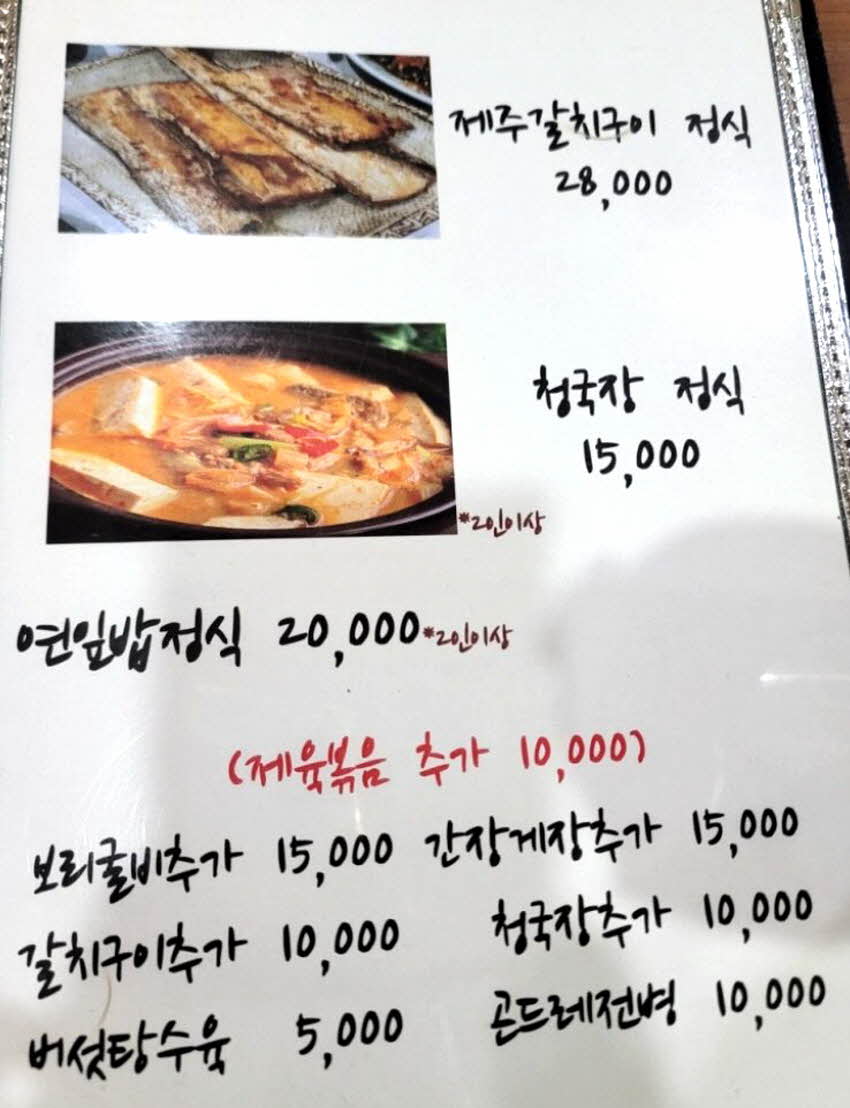 제주갈치구이 정식
28,000
청국장 정식
15,000
*2인이상
연잎밥정식 20,000 *2인이상
(제육볶음 추가 10,000)
보리굴비추가 15,000 간장게장추가 15,000
갈치구이추가 10,000 청국장추가 10,000
버섯탕수육 5,000 곤드레전병 10,000